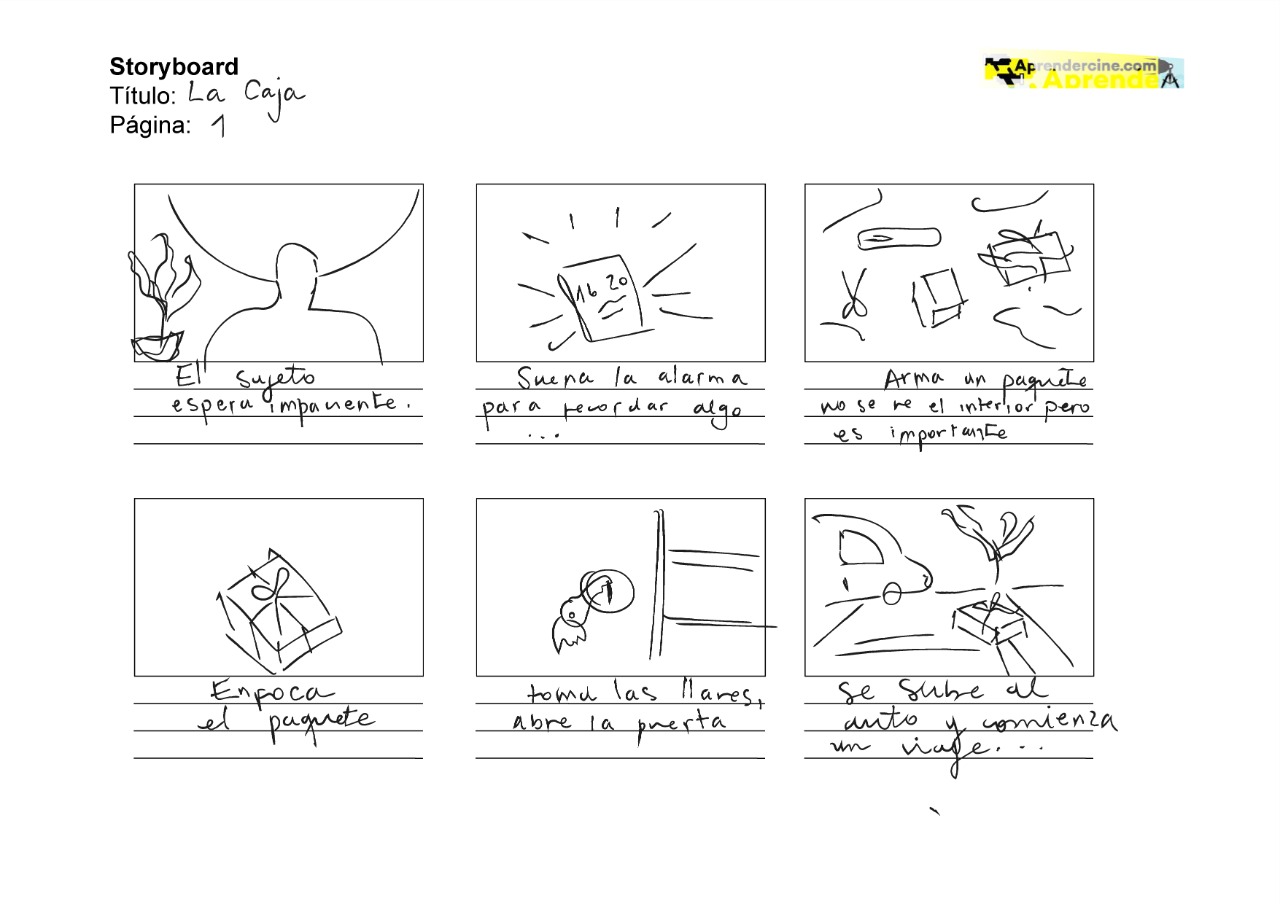 Storyboard
Título: La Caja
Página: 1
Aprendercine.com
Aprende
16 20
El sujeto
espera impaciente.
Suena la alarma
para recordar algo
...
Arma un paquete
no se ve el interior pero
es importante
Enfoca
el paquete
toma las llaves,
abre la puerta
se sube al
auto y comienza
un viaje...